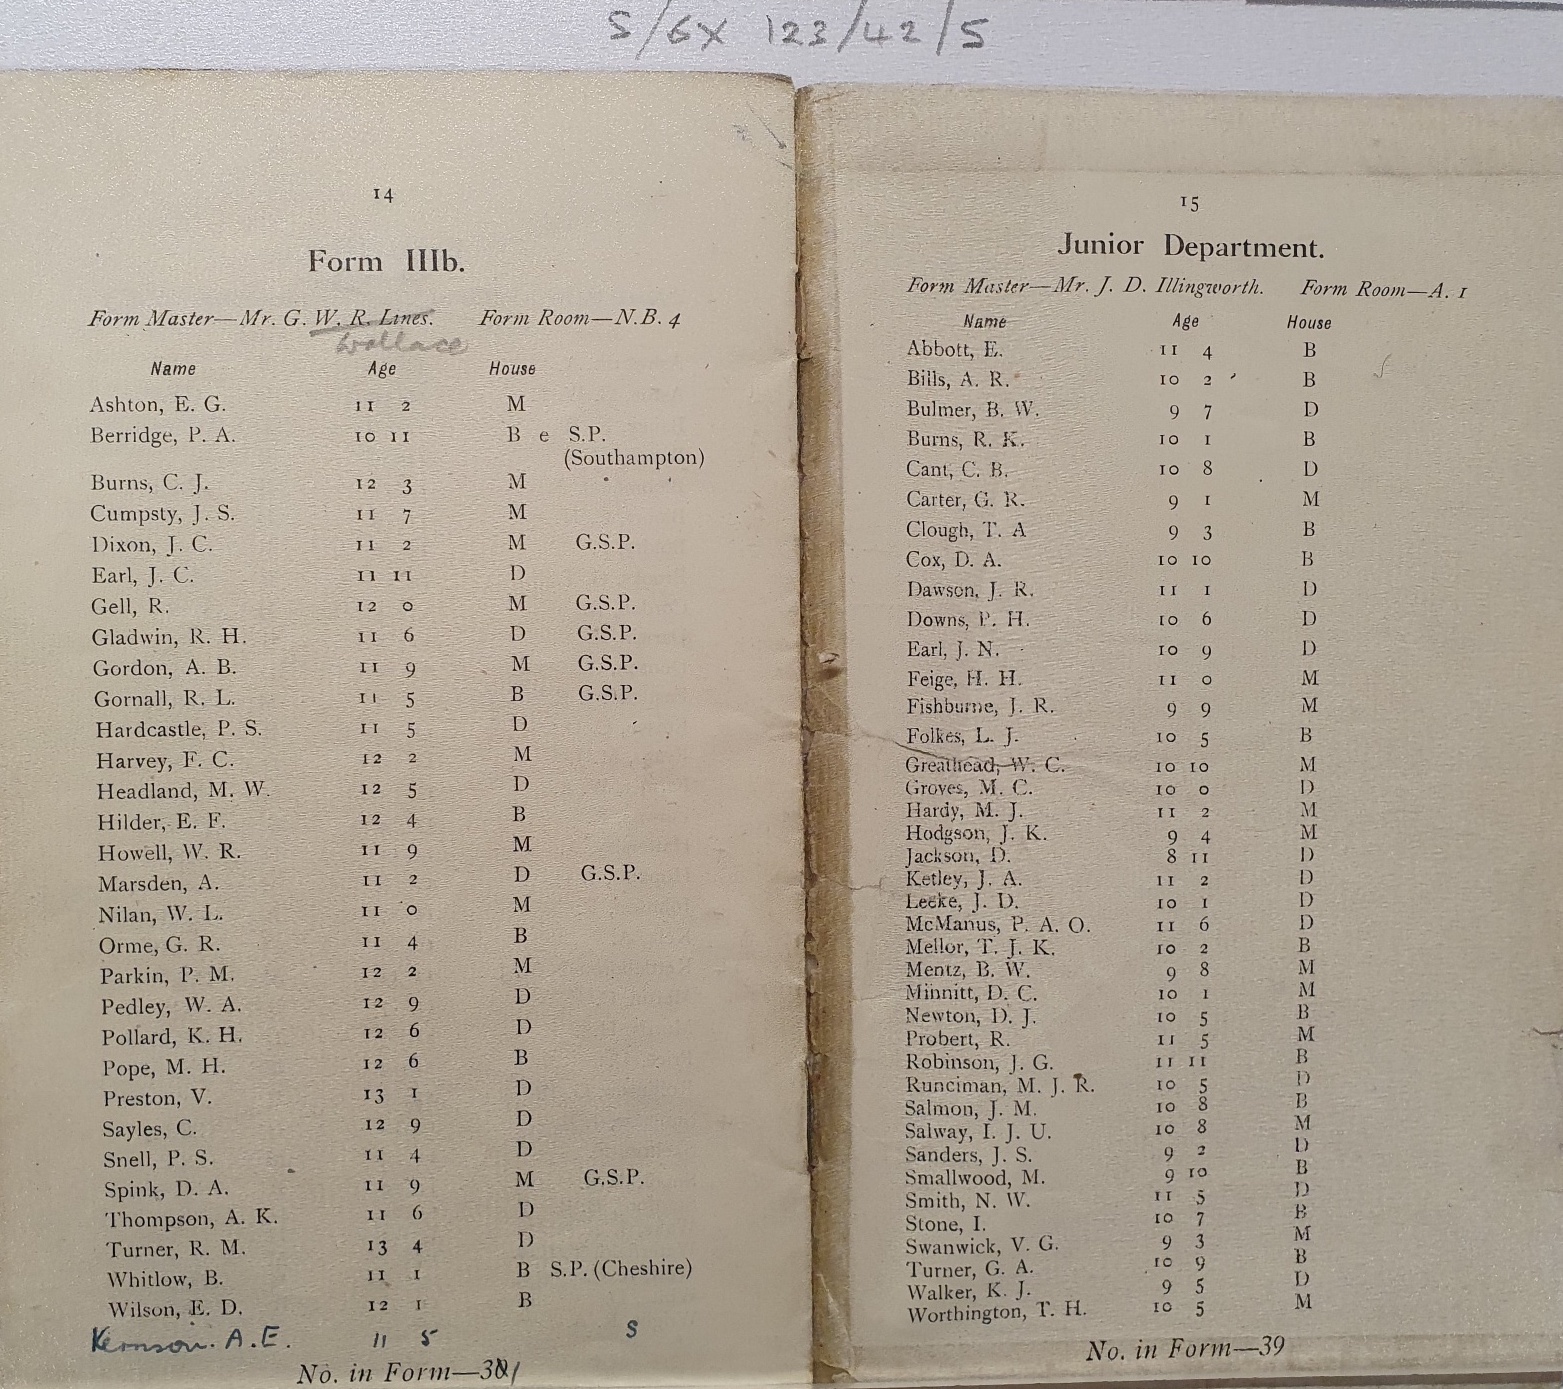 S/6X 123/42/5
14
Form IIIb.
Form Master—Mr. G. W. R. Lines. Form Room—N.B. 4
Wallace
Name Age House
Ashton, E. G. 11 2 M
Berridge, P. A. 10 11 B e S.P.
(Southampton)
Burns, C. J. 12 3 M
Cumpsty, J. S. 11 7 M
Dixon, J. C. 11 2 M G.S.P.
Earl, J. C. 11 11 D
Gell, R. 12 0 M G.S.P.
Gladwin, R. H. 11 6 D G.S.P.
Gordon, A. B. 11 9 M G.S.P.
Gornall, R. L. 11 5 B G.S.P.
Hardcastle, P. S. 11 5 D
Harvey, F. C. 12 2 M
Headland, M. W. 12 5 D
Hilder, E. F. 12 4 B
Howell, W. R. 11 9 M
Marsden, A. 11 2 D G.S.P.
Nilan, W. L. 11 0 M
Orme, G. R. 11 4 B
Parkin, P. M. 12 2 M
Pedley, W. A. 12 9 D
Pollard, K. H. 12 6 D
Pope, M. H. 12 6 B
Preston, V. 13 1 D
Sayles, C. 12 9 D
Snell, P. S. 11 4 D
Spink, D. A. 11 9 M G.S.P.
Thompson, A. K. 11 6 D
Turner, R. M. 13 4 D
Whitlow, B. 11 1 B S.P. (Cheshire)
Wilson, E. D. 12 1 B
A.E. 11 5 S
No. in Form—301
15
Junior Department.
Form Master—Mr. J. D. Illingworth. Form Room—A. 1
Name Age House
Abbott, E. 11 4 B
Bills, A. R. 10 2 B
Bulmer, B. W. 9 7 D
Burns, R. K. 10 1 B
Cant, C. B. 10 8 D
Carter, G. R. 9 1 M
Clough, T. A 9 3 B
Cox, D. A. 10 10 B
Dawson, J. R. 11 1 D
Downs, P. H. 10 6 D
Earl, J. N. 10 9 D
Feige, H. H. 11 0 M
Fishburne, J. R. 9 9 M
Folkes, L. J. 10 5 B
Greathead, W. C. 10 10 M
Groves, M. C. 10 0 D
Hardy, M. J. 11 2 M
Hodgson, J. K. 9 4 M
Jackson, D. 8 11 D
Ketley, J. A. 11 2 D
Leeke, J. D. 10 1 D
McManus, P. A. O. 11 6 D
Mellor, T. J. K. 10 2 B
Mentz, B. W. 9 8 M
Minnitt, D. C. 10 1 M
Newton, D. J. 10 5 B
Probert, R. 11 5 M
Robinson, J. G. 11 11 B
Runciman, M. J. R. 10 5 D
Salmon, J. M. 10 8 B
Salway, I. J. U. 10 8 M
Sanders, J. S. 9 2 D
Smallwood, M. 9 10 B
Smith, N. W. 11 5 D
Stone, I. 10 7 B
Swanwick, V. G. 9 3 M
Turner, G. A. 10 9 B
Walker, K. J. 9 5 D
Worthington, T. H. 10 5 M
No. in Form—39